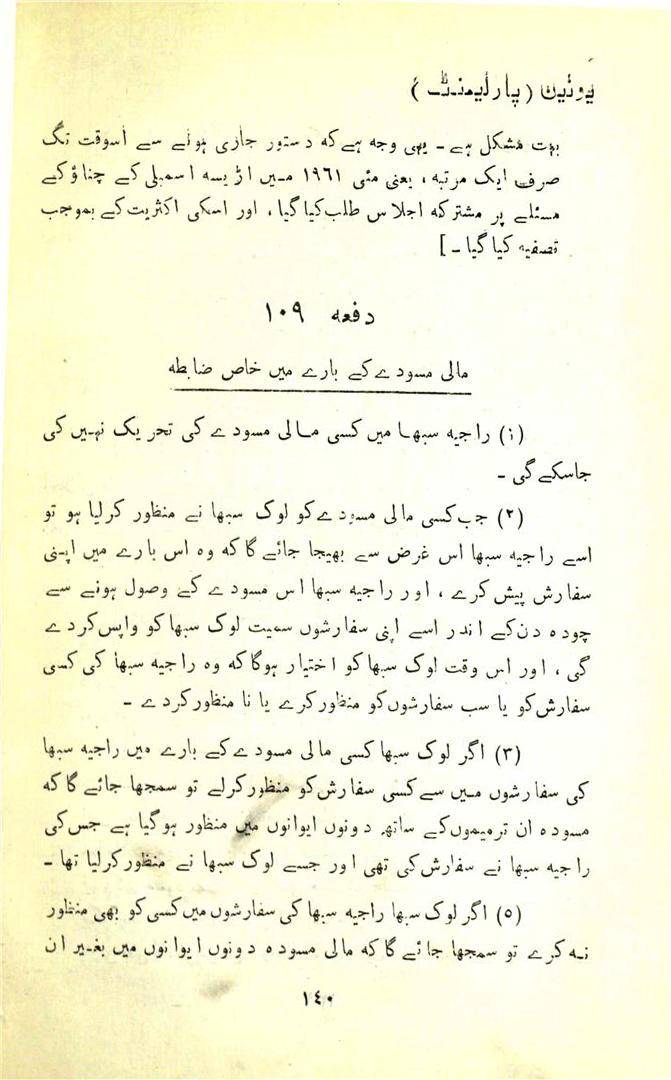 یونین (پارلیمنٹ)
بہت مشکل ہے ۔ یہی وجہ ہے کہ دستور جاری ہونے سے اسوقت تک
صرف ایک مرتبہ ، یعنی مئی ۱۹۶۱ میں اڑیسہ اسمبلی کے چناؤ کے
مسئلے پر مشترکہ اجلاس طلب کیا گیا ، اور اسکی اکثریت کے بموجب
تصفیہ کیا گیا ۔ ]
دفعہ ۱۰۹
مالی مسودے کے بارے میں خاص ضابطہ
(۱) راجیہ سبھا میں کسی مالی مسودے کی تحریک نہیں کی
جاسکے گی ۔
(۲) جب کسی مالی مسودے کو لوک سبھا نے منظور کرلیا ہو تو
اسے راجیہ سبھا اس غرض سے بھیجا جائے گا کہ وہ اس بارے میں اپنی
سفارش پیش کرے ، اور راجیہ سبھا اس مسودے کے وصول ہونے سے
چودہ دن کے اندر اسے اپنی سفارشوں سمیت لوک سبھا کو واپس کردے
گی ، اور اس وقت لوک سبھا کو اختیار ہوگا کہ وہ راجیہ سبھا کی کسی
سفارش کو یا سب سفارشوں کو منظور کرے یا نا منظور کردے ۔
(۳) اگر لوک سبھا کسی مالی مسودے کے بارے میں راجیہ سبھا
کی سفارشوں میں سے کسی سفارش کو منظور کرلے تو سمجھا جائے گا کہ
مسودہ ان ترمیموں کے ساتھ دونوں ایوانوں میں منظور ہوگیا ہے جس کی
راجیہ سبھا نے سفارش کی تھی اور جسے لوک سبھا نے منظور کرلیا تھا ۔
(۵) اگر لوک سبھا راجیہ سبھا کی سفارشوں میں کسی کو بھی منظور
نہ کرے تو سمجھا جائے گا کہ مالی مسودہ دونوں ایوانوں میں بغیر ان
۱۴۰